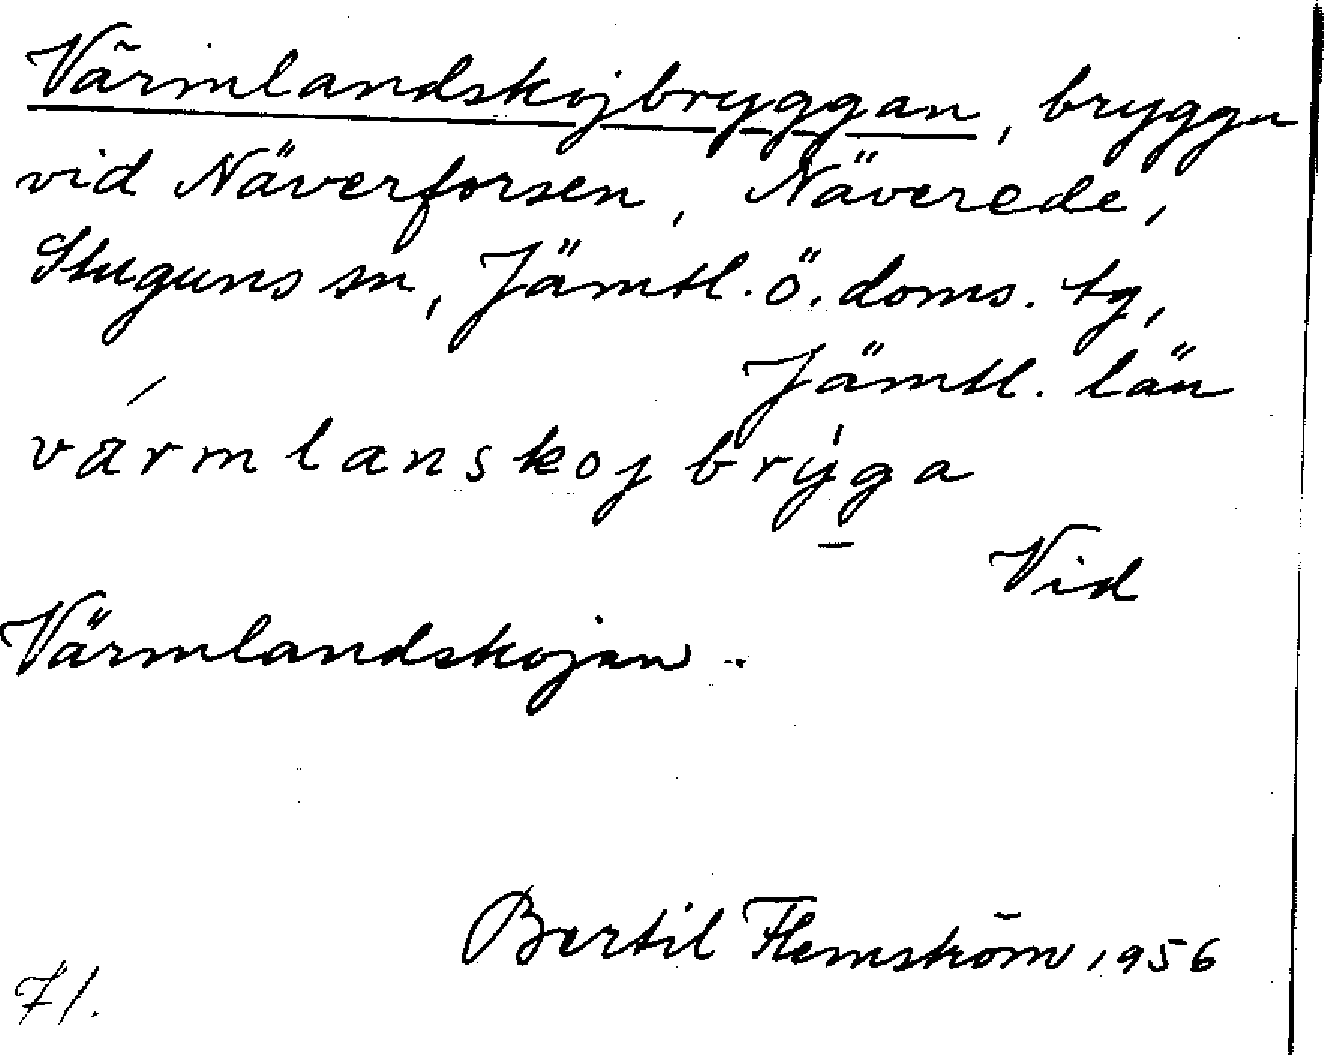 Värmlandskojbryggan, brygga
vid Näverforsen, Näverede,
Stuguns sn, Jämtl. ö. doms. tg,
Jämtl. län
värmlanskojbryga
Vid
Värmlandskojan.
Bertil Flemström, 1956
71.